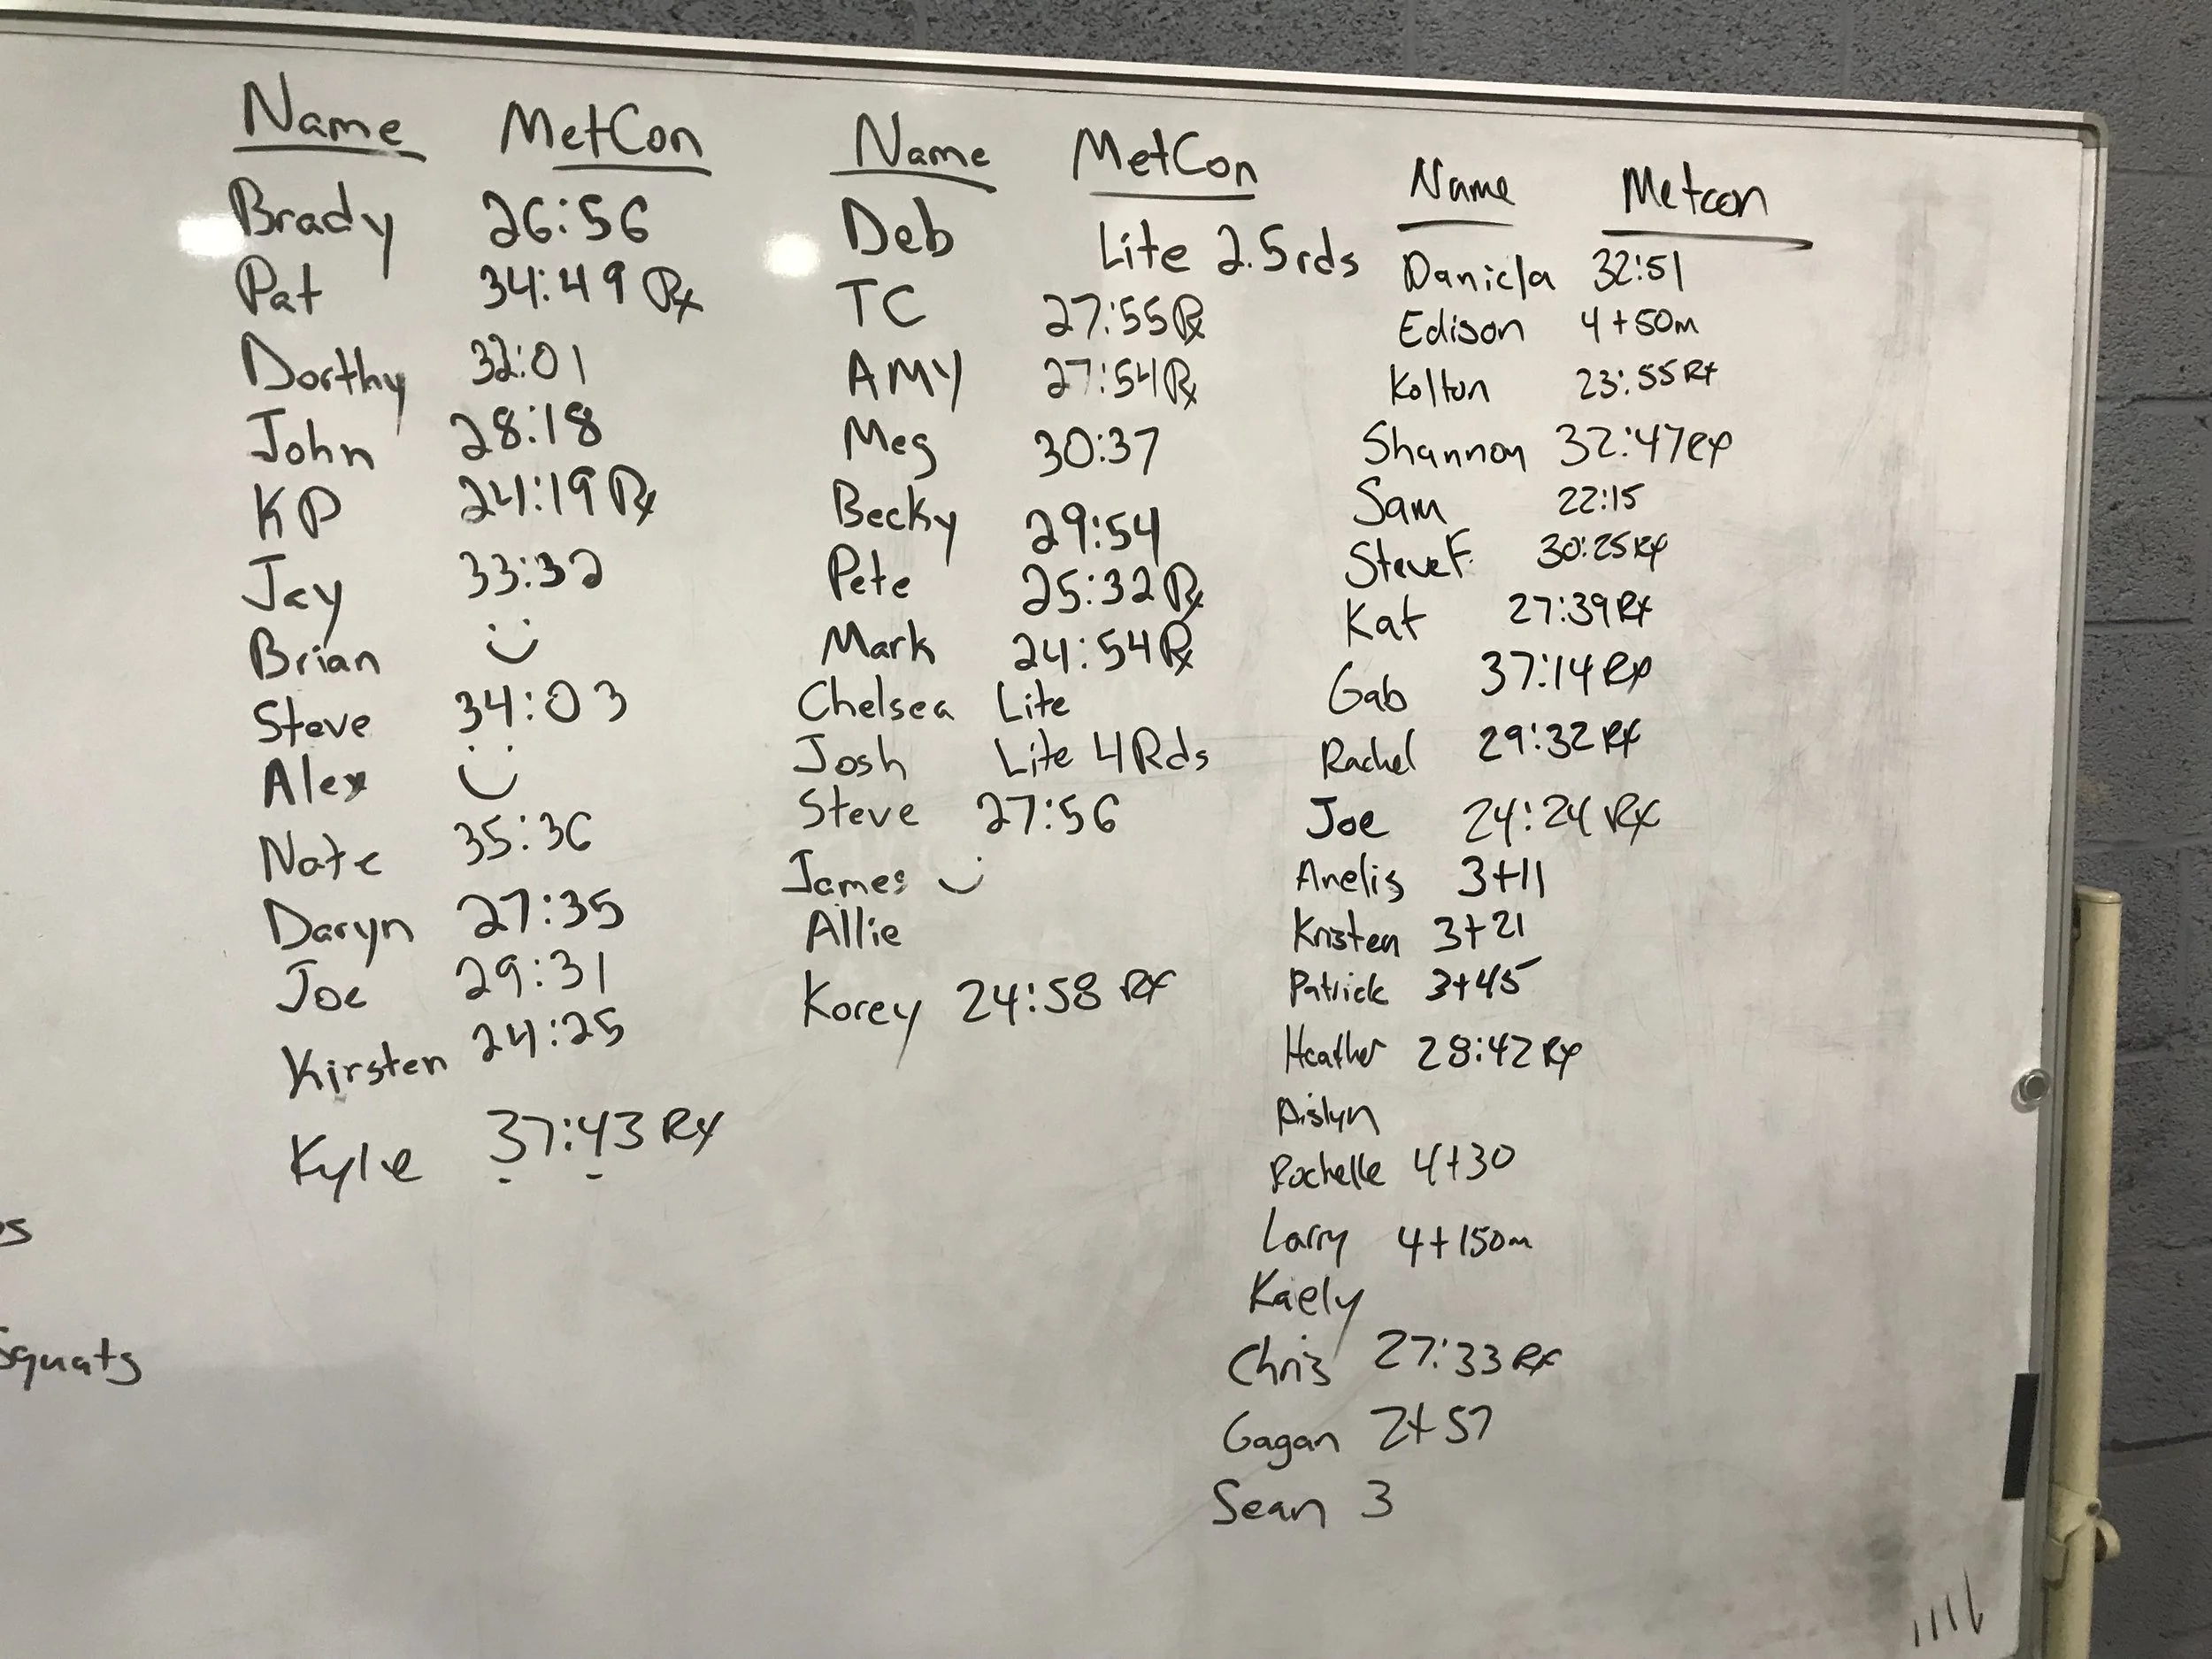 Name MetCon
Brady 26:56
Pat 34:49 Rx
Dorthy 32:01
John 28:18
KP 24:19 Rx
Jay 33:32
Brian
Steve 34:03
Alex
Nate 35:36
Daryn 27:35
Joe 29:31
Kirsten 24:25
Kyle 37:43 Rx
Name MetCon
Deb Lite 2.5rds
TC 27:55 Rx
AMY 27:54 Rx
Meg 30:37
Becky 29:54
Pete 25:32 Rx
Mark 24:54 Rx
Chelsea Lite
Josh Lite 4 Rds
Steve 27:56
James
Allie
Korey 24:58 Rx
Name Metcon
Daniela 32:51
Edison 4+50m
Kolton 23:55 Rx
Shannon 32:47 Rx
Sam 22:15
Steve F. 30:25 Rx
Kat 27:39 Rx
Gab 37:14 Rx
Rachel 29:32 Rx
Joe 24:24 Rx
Anelis 3+11
Kristen 3+21
Patrick 3+45
Heather 28:42 Rx
Aislyn
Rochelle 4+30
Larry 4+150m
Kaely
Chris 27:33 Rx
Gagan 2+57
Sean 3
Squats